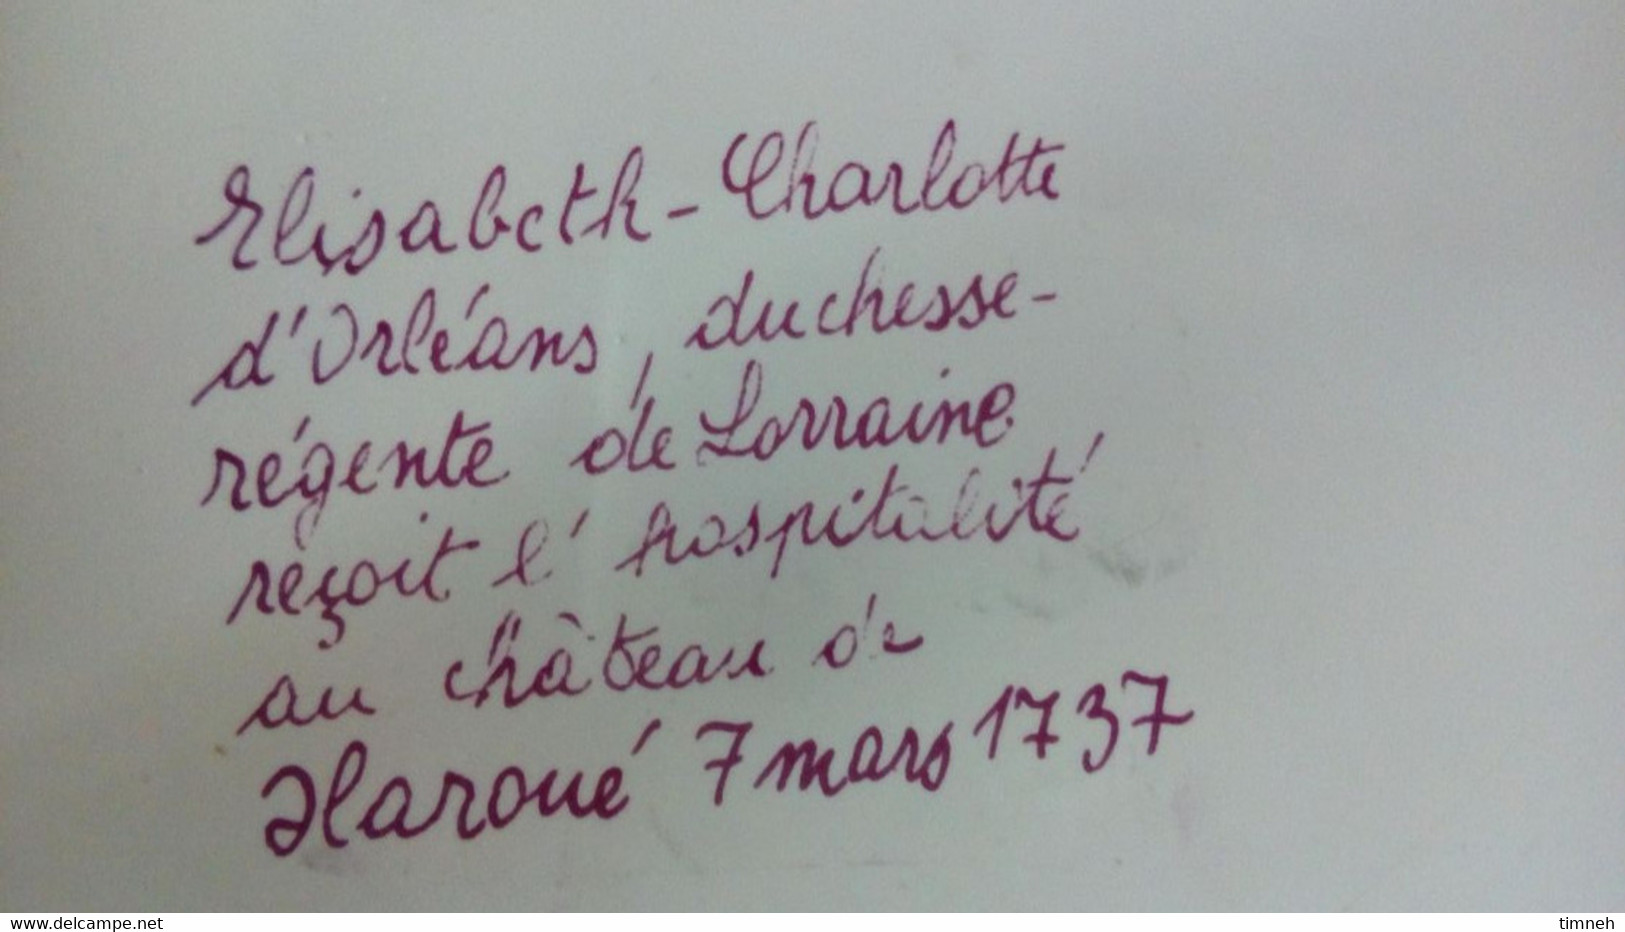 Elisabeth-Charlotte
d'Orléans, duchesse-
régente de Lorraine
reçoit l'hospitalité
au château de
Haroué 7 mars 1737
www.delcampe.net
timneh